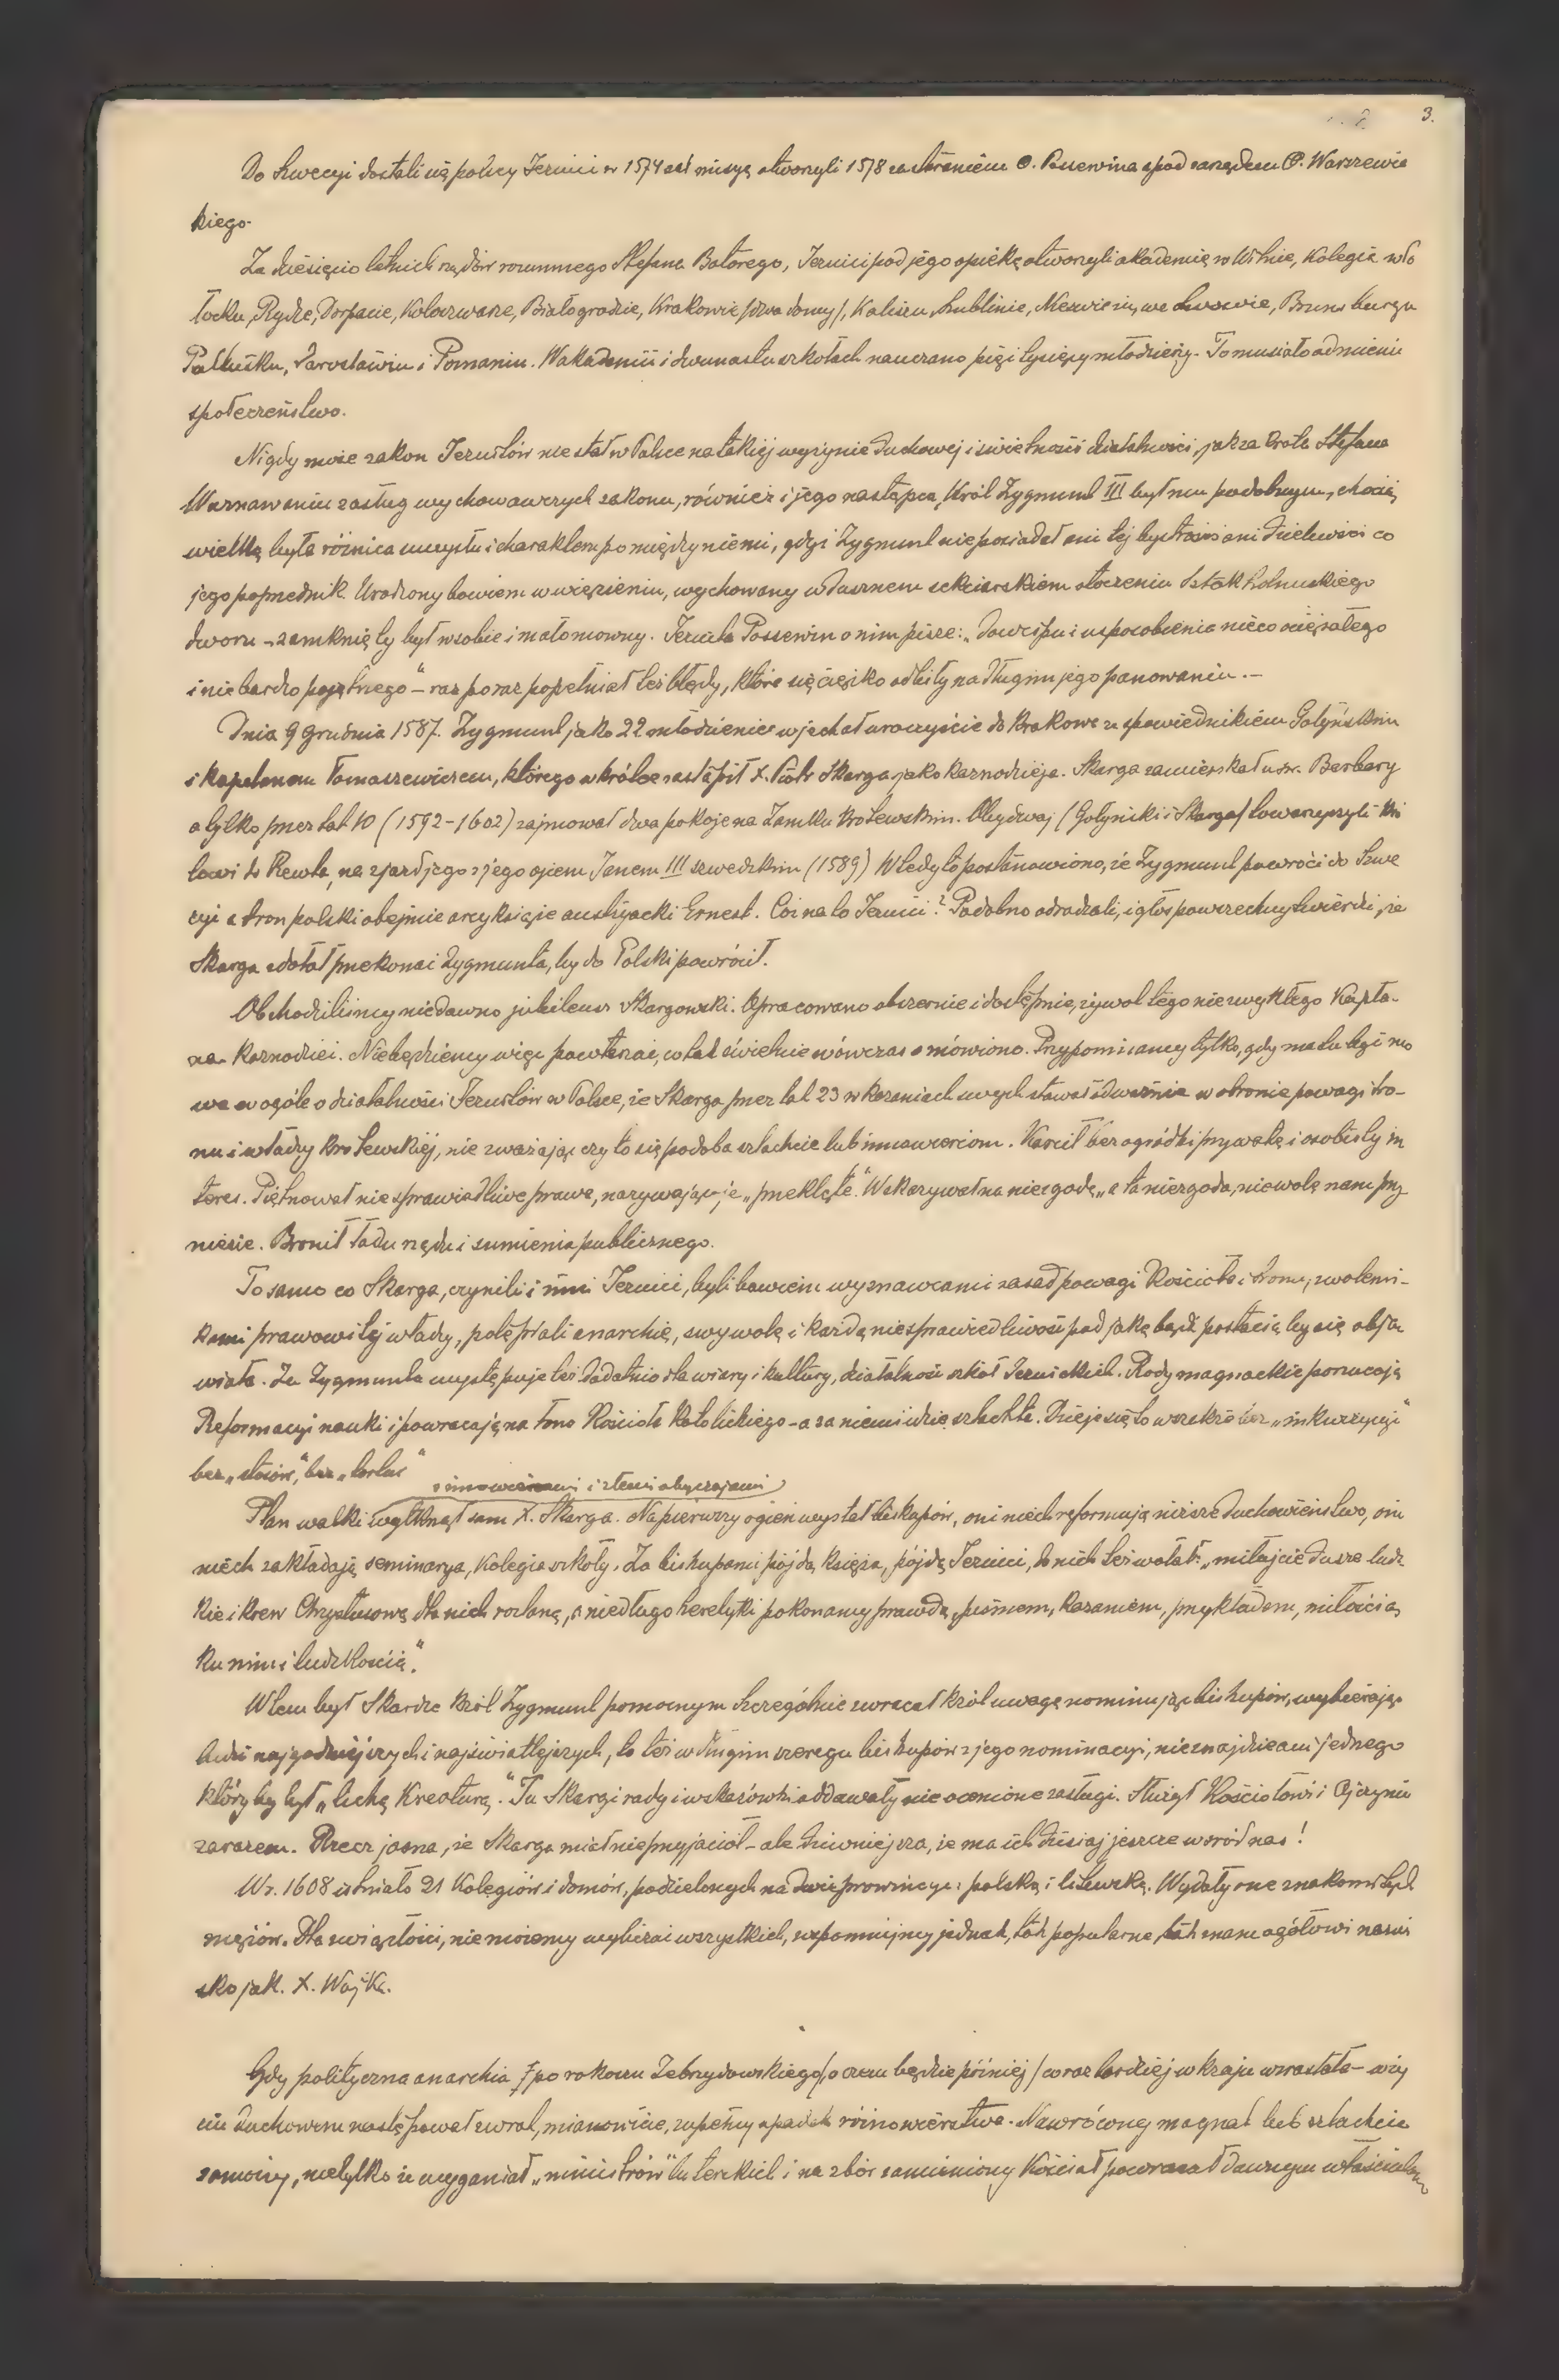 3.
Do Szwecyi dostali się polscy Jezuici w 1574 zaś misyę otworzyli 1578 za staraniem O. Possewina a pod zarządem O. Warszewic
kiego.
Za dziesięcio letnich rządów rozumnego Stefana Batorego, Jezuici pod jego opieką otworzyli akademię w Wilnie, Kolegia w Po
łocku, Rydze, Dorpacie, Koloszwarze, Białogrodzie, Krakowie /dwa domy/, Kaliszu, Lublinie, Nieświeżu, we Lwowie, Brunsbergu
Pułtusku, Jarosławiu i Poznaniu. W akademii i dwunastu szkołach nauczano pięć tysięcy młodzieży. To musiało odmienić
społeczeństwo.
Nigdy może zakon Jezuitów nie stał w Polsce na takiej wyżynie duchowej i świetności działalności, jak za króla Stefana
W uznawaniu zasług wychowawczych zakonu, również i jego następca, Król Zygmunt III był mu podobnym, chociaż
wielką była różnica umysłu i charakteru pomiędzy niemi, gdyż Zygmunt nie posiadał ani tej bystrości ani dzielności co
jego poprzednik. Urodzony bowiem w więzieniu, wychowany w dusznem sekciarskiem otoczeniu Sztokholmskiego
dworu - zamknięty był w sobie i małomowny. Jezuita Possewin o nim pisze: „Dowcipu i usposobienia nieco ociężałego
i nie bardzo pojętnego" - raz po raz popełniał też błędy, które się ciężko odbiły na długim jego panowaniu. -
Dnia 9 Grudnia 1587. Zygmunt jako 22 młodzieniec wjechał uroczyście do Krakowa ze spowiednikiem Gołyńskim
i kapelanem Tomaszewiczem, którego wkrótce zastąpił X. Piotr Skarga jako kaznodzieja. Skarga zamieszkał u św. Barbary
a tylko przez lat 10 (1592-1602) zajmował dwa pokoje na Zamku Królewskim. Obydwaj /Gołyński i Skarga/ towarzyszyli Kró
lowi do Rewla, na zjazd jego z jego ojcem Janem III szwedzkim (1589) Wtedy to postanowiono, że Zygmunt powróci do Szwe
cyi a tron polski obejmie arcyksiąże austryacki Ernest. Cóż na to Jezuici? Podobno odradzali, i głos powszechny twierdzi, że
Skarga zdołał przekonać Zygmunta, by do Polski powrócił.
Obchodziliśmy niedawno jubileusz Skargowski. Opracowano obszernie i dostępnie, żywot tego niezwykłego Kapła-
na Kaznodziei. Nie będziemy więc powtarzać, co tak świetnie wówczas omówiono. Przypominamy tylko, gdy ma tu być mo
wa w ogóle o działalności Jezuitów w Polsce, że Skarga przez lat 23 w kazaniach swych stawał odważnie w obronie powagi tro-
nu i władzy Królewskiej, nie zważając czy to się podoba szlachcie lub innowiercom. Karcił bez ogródki prywatę i osobisty in
teres. Piętnował niesprawiedliwe prawa, nazywając je „przeklęte". Wskazywał na niezgodę „a ta niezgoda, niewolę nam przy
niesie. Bronił ładu rządu i sumienia publicznego.
To samo co Skarga, czynili i inni Jezuici, byli bowiem wyznawcami zasad powagi Kościoła i tronu, zwolenni-
kami prawowitej władzy, potępiali anarchię, swywolę i każdą niesprawiedliwość pod jaką bądź postacią by się obja
wiała. Za Zygmunta występuje też dodatnio dla wiary i kultury, działalność szkół Jezuickich. Rody magnackie porzucają
Reformacyi nauki i powracają na łono Kościoła Katolickiego - a za niemi idzie szlachta. Dzieje się to wszakże bez „inkwizycyi"
bez „stosów", bez „tortur"
z innowiercami i złemi obyczajami
Plan walki wytknął sam X. Skarga. Na pierwszy ogień wysłał biskupów, oni niech reformują niższe duchowieństwo, oni
niech zakładają seminarya, Kolegia szkoły. Za biskupami pójdą księża, pójdą Jezuici, do nich też wołał: „miłujcie dusze ludz
kie i krew Chrystusową dla nich rozlaną, a niedługo heretyki pokonamy prawdą, pismem, kazaniem, przykładem, miłością
ku nim i ludzkością".
W tem był Skardze Król Zygmunt pomocnym Szczególnie zwracał król uwagę nominując biskupów, wybierając
ludzi najgodniejszych i najświatlejszych, to też w długim szeregu biskupów z jego nominacyi, nie znajdzie ani jednego
któryby był „lichą Kreaturą". Tu Skargi rady i wskazówki oddawały nieocenione zasługi. Służył Kościołowi i Ojczyźnie
zarazem. Rzecz jasna, że Skarga miał nieprzyjaciół - ale dziwniejsza, że ma ich dzisiaj jeszcze wśród nas!
W r. 1608 istniało 21 Kolegiów i domów, podzielonych na dwie prowincye: polską i litewską. Wydały one znakomitych
mężów. Dla zwięzłości, nie możemy wyliczać wszystkich, wspomnijmy jednak, tak popularne, tak znane ogółowi nazwi
sko jak. X. Wujka.
Gdy polityczna anarchia /po rokoszu Zebrzydowskiego/, o czem będzie później/ coraz bardziej w kraju wzrastała - w ży
ciu duchowem następował zwrot, mianowicie, zupełny upadek różnowierstwa. Nawrócony magnat lub szlachcic
zamożny, nie tylko że wyganiał „ministrów" luterskich i na zbór zamieniony Kościół powracał dawnym właścicielom